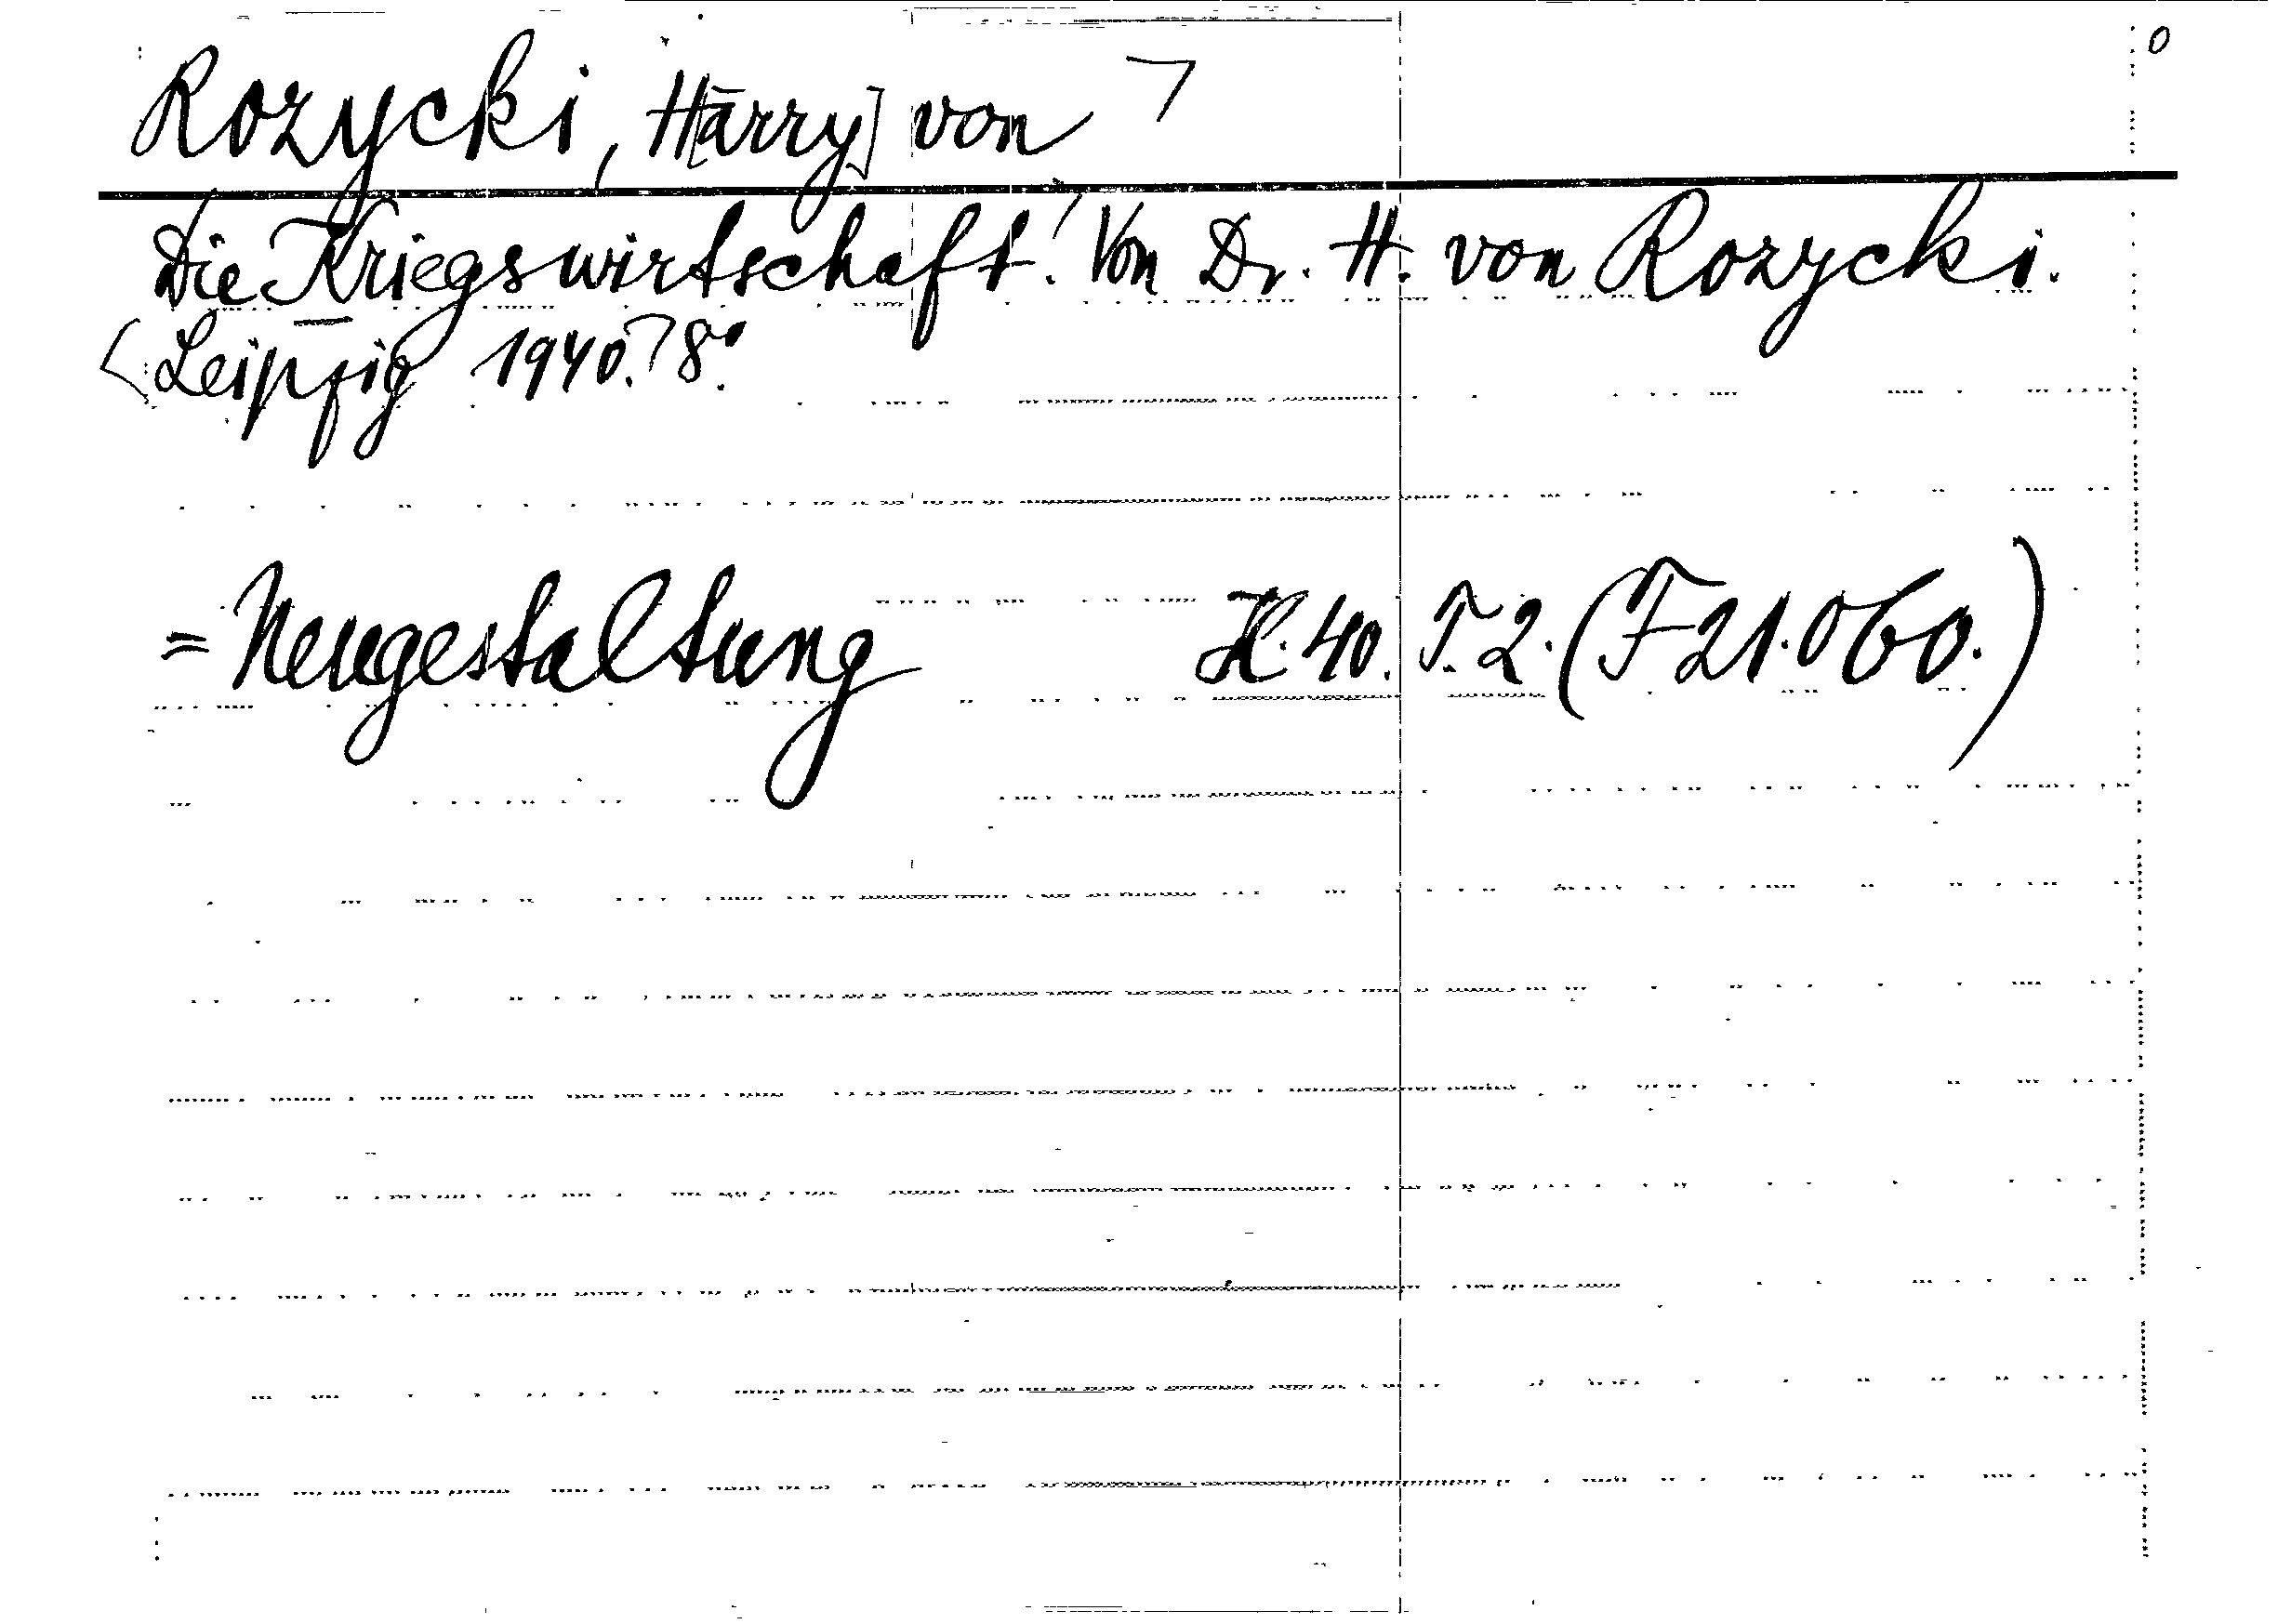 Rozycki, H[arry] von ⌝ 0
Die Kriegswirtschaft. Von Dr. H. von Rozycki.
Leipzig 1940. 8°.
= Neugestaltung H. 40. T. 2. (F 21.060.)